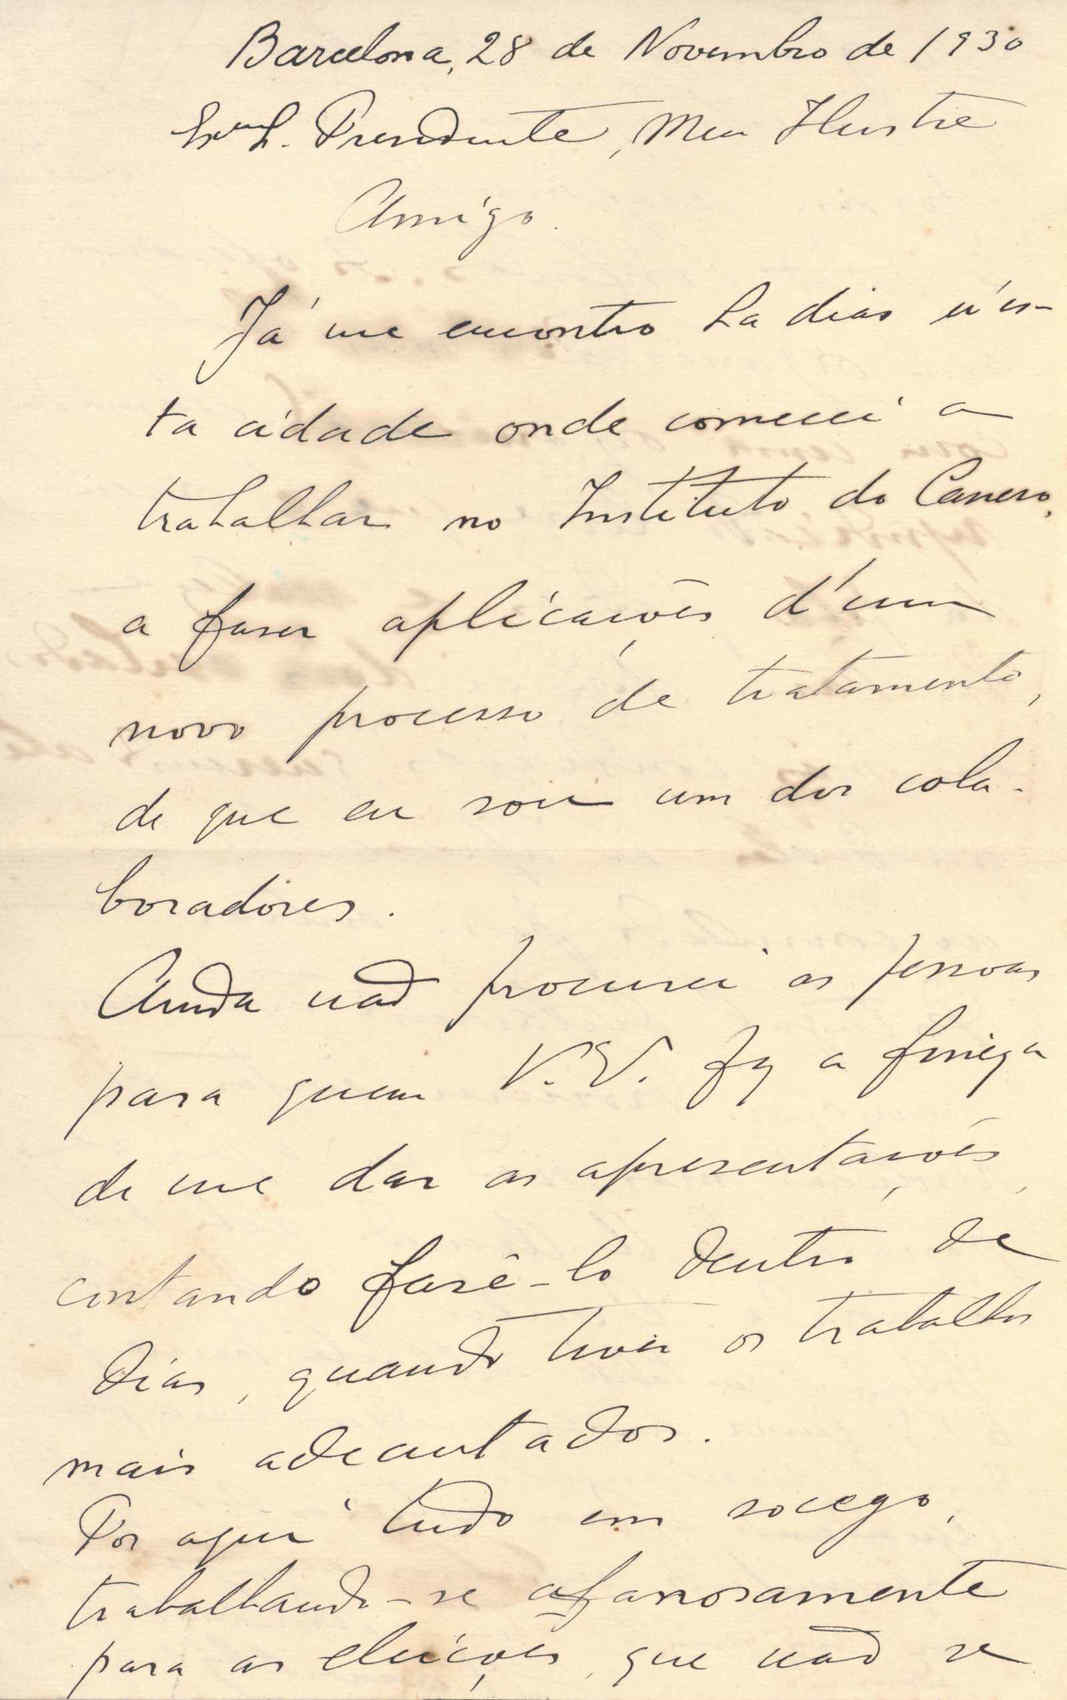 Barcelona, 28 de Novembro de 1930
Exmº Sr. Presidente, Meu Ilustre
Amigo.
Já me encontro ha dias n'es-
ta cidade onde comecei a
trabalhar no Instituto do Cancro,
a faser aplicações d'um
novo processo de tratamento,
de que eu sou um dos cola-
boradores.
Ainda não procurei as pessoas
para quem V. Ex. fez a fineza
de me dar as apresentações,
contando fasê-lo dentro de
dias, quando tiver os trabalhos
mais adeantados.
Por aqui tudo em socego,
trabalhando-se afanosamente
para as eleições, que não se